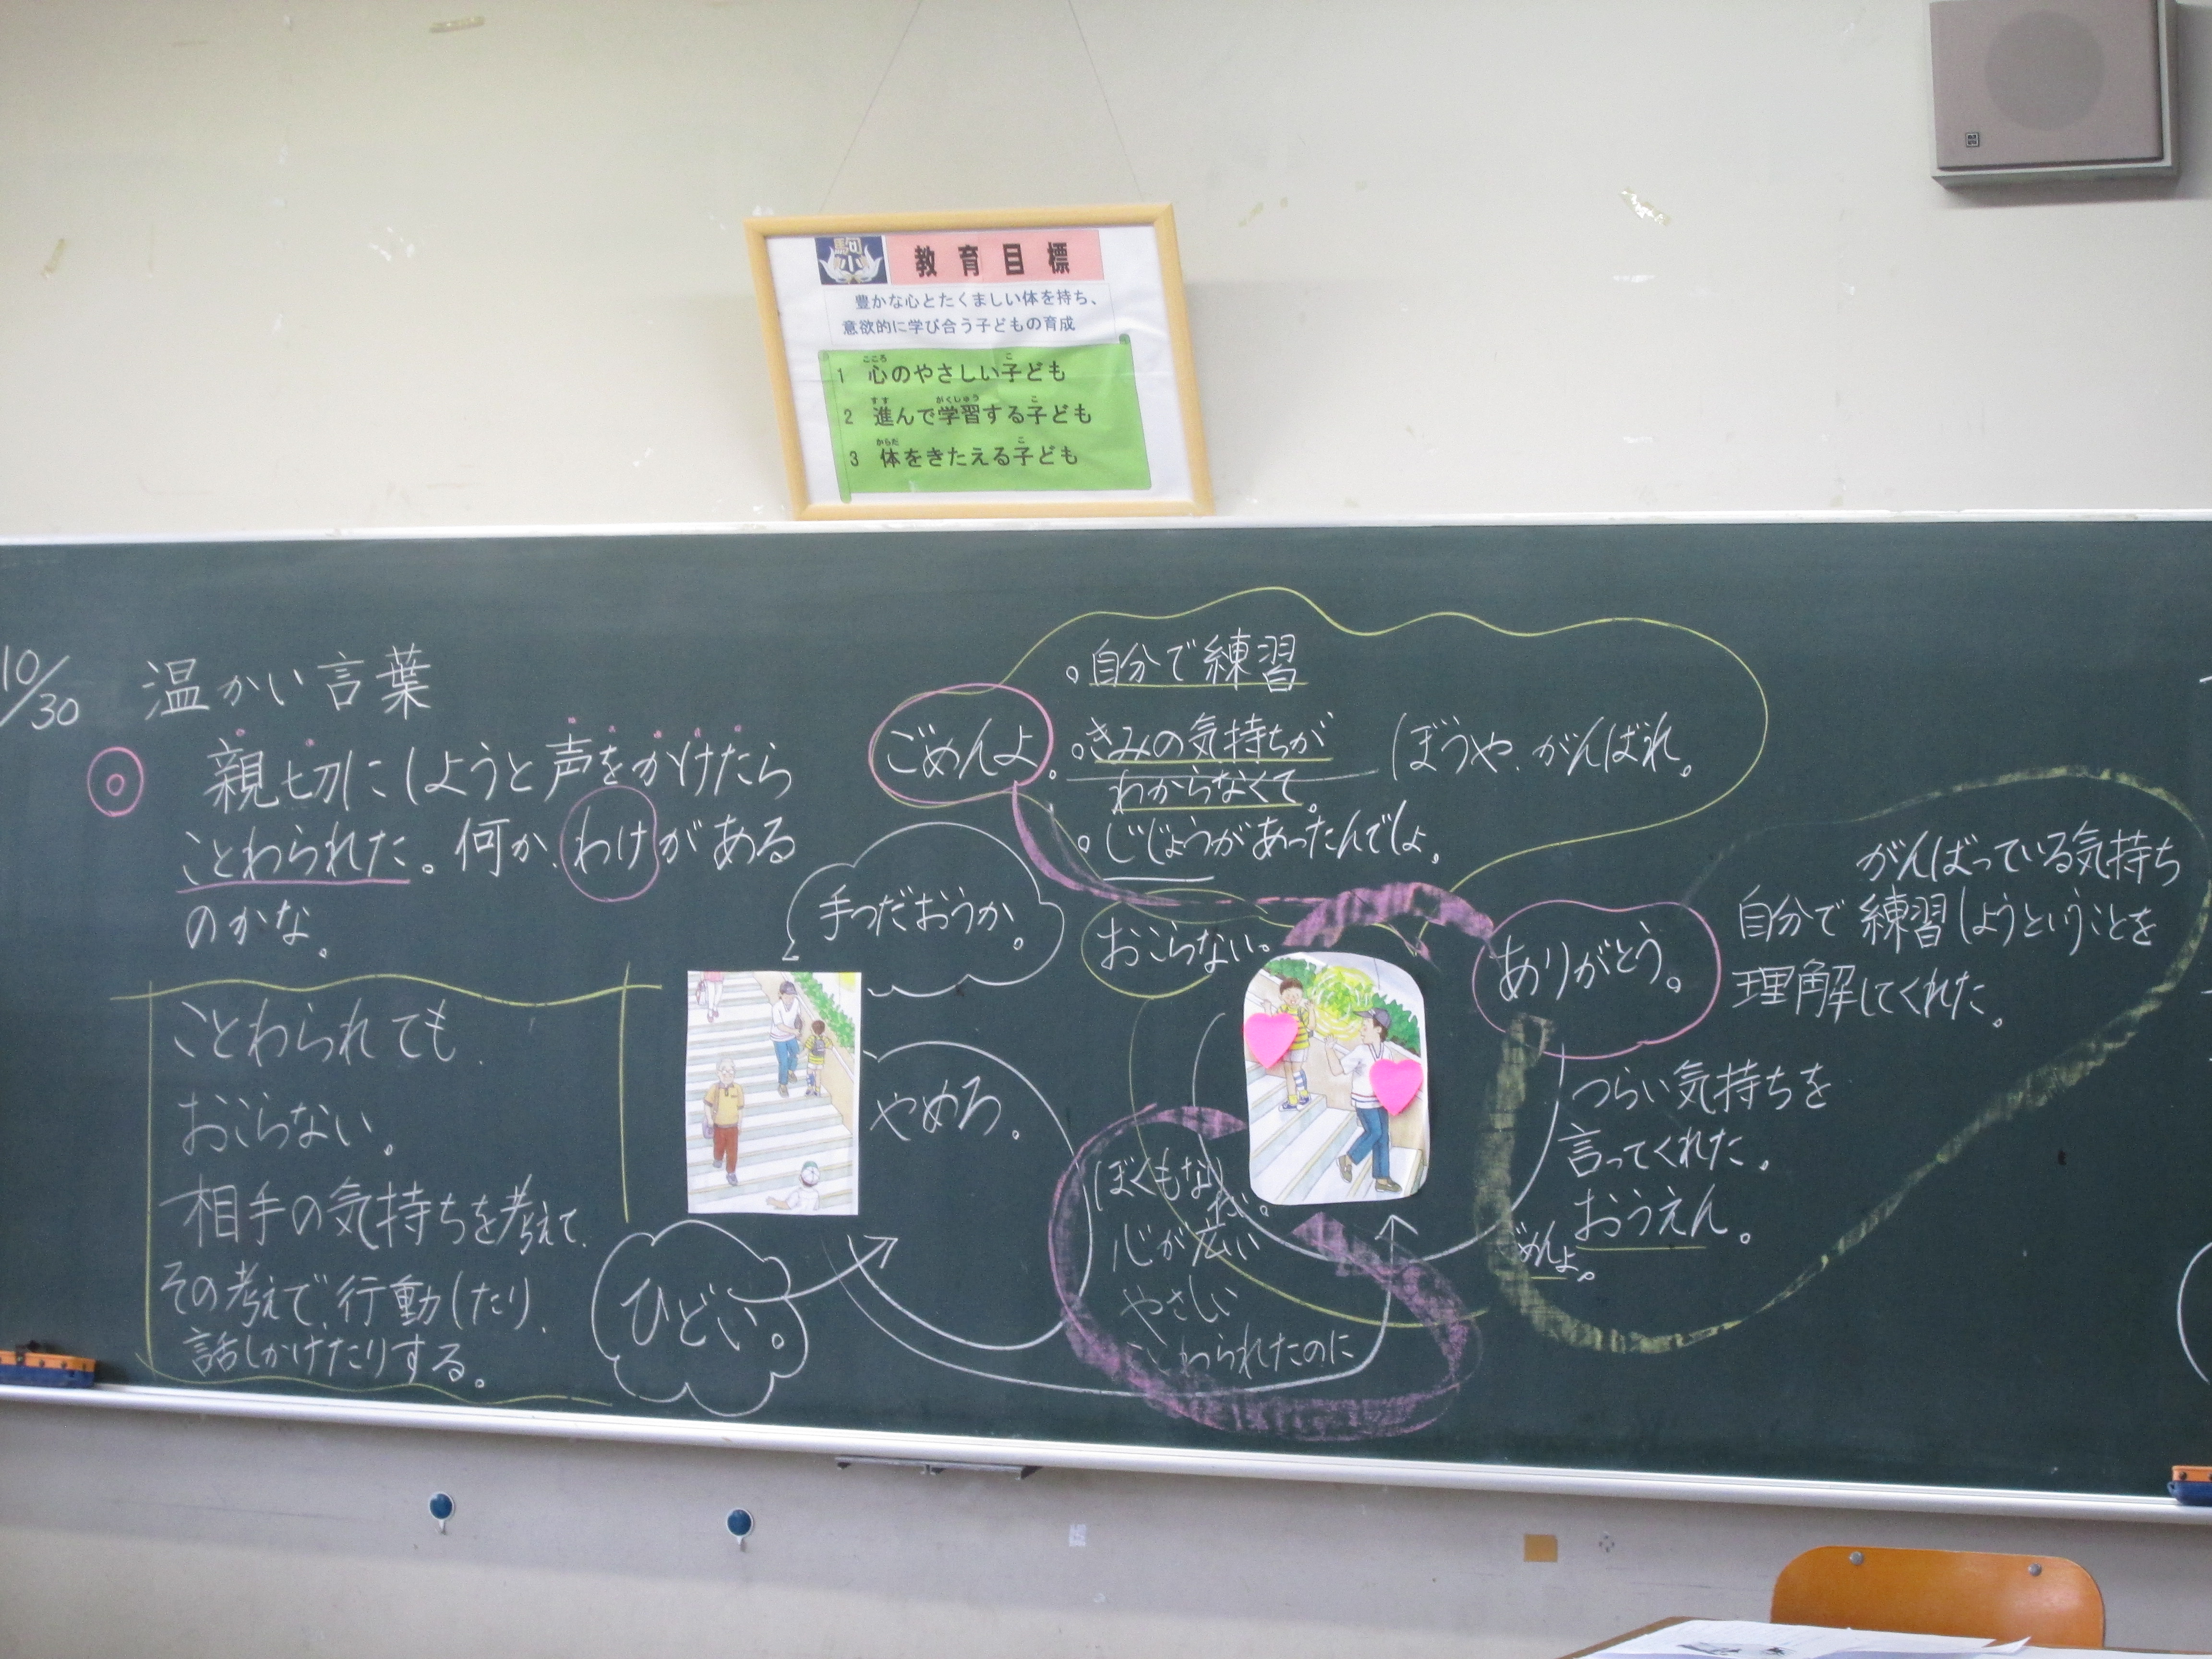 駒
小
教育目標
豊かな心とたくましい体を持ち、
意欲的に学び合う子どもの育成
1 心のやさしい子ども
2 進んで学習する子ども
3 体をきたえる子ども
10/30 温かい言葉
◎ 親切にしようと声をかけたら
ことわられた。何か、わけがある
のかな。
ことわられても、
おこらない。
相手の気持ちを考えて、
その考えで、行動したり、
話しかけたりする。
手つだおうか。
やめろ。
ひどい。
ごめんよ。
。自分で練習
。きみの気持ちが
わからなくて。
。じじょうがあったんでしょ。
ぼうや、がんばれ。
おこらない。
ぼくもな
心が広い
やさしい
ことわられたのに
ありがとう。
がんばっている気持ち
自分で練習しようということを
理解してくれた。
つらい気持ちを
言ってくれた。
おうえん。
ごめんよ。